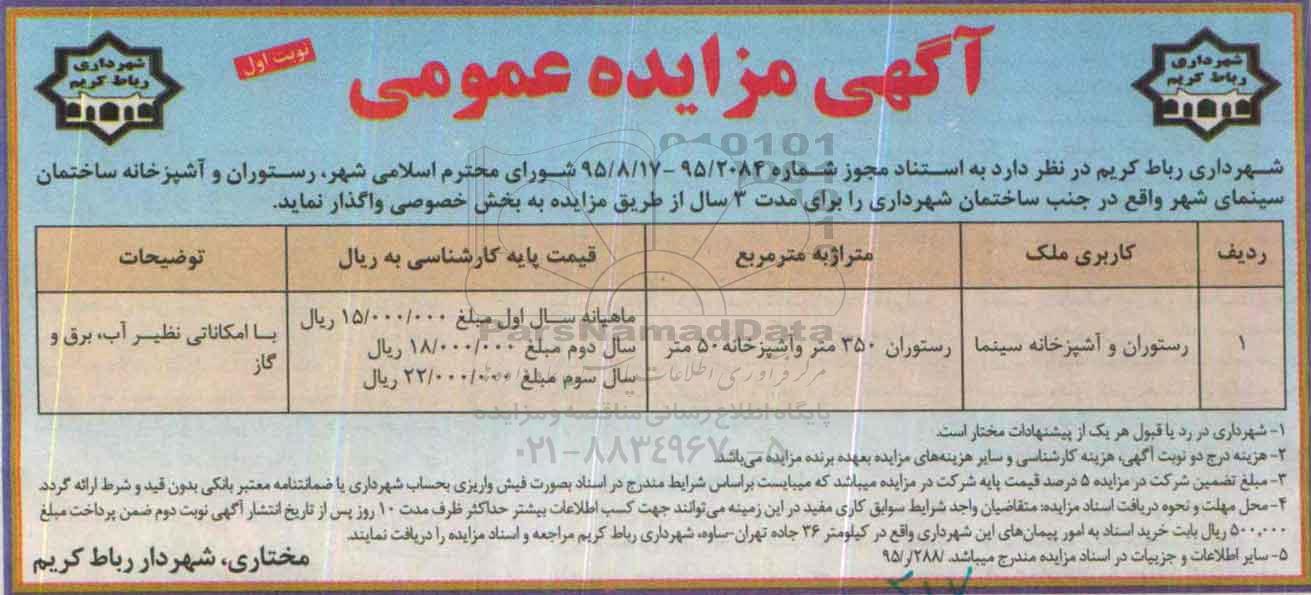 شهرداری
رباط کریم
آگهی مزایده عمومی
نوبت اول
شهرداری
رباط کریم
شهرداری رباط کریم در نظر دارد به استناد مجوز شماره ۹۵/۲۰۸۴ -۹۵/۸/۱۷ شورای محترم اسلامی شهر، رستوران و آشپزخانه ساختمان
سینمای شهر واقع در جنب ساختمان شهرداری را برای مدت ۳ سال از طریق مزایده به بخش خصوصی واگذار نماید.
ردیف
کاربری ملک
متراژبه مترمربع
قیمت پایه کارشناسی به ریال
توضیحات
۱
رستوران و آشپزخانه سینما
رستوران ۳۵۰ متر وآشپزخانه۵۰ متر
ماهیانه سال اول مبلغ ۱۵/۰۰۰/۰۰۰ ریال
سال دوم مبلغ ۱۸/۰۰۰/۰۰۰ ریال
سال سوم مبلغ ۲۲/۰۰۰/۰۰۰ ریال
با امکاناتی نظیر آب، برق و
گاز
۱- شهرداری در رد یا قبول هر یک از پیشنهادات مختار است.
۲- هزینه درج دو نوبت آگهی، هزینه کارشناسی و سایر هزینه‌های مزایده بعهده برنده مزایده می‌باشد.
۳- مبلغ تضمین شرکت در مزایده ۵ درصد قیمت پایه شرکت در مزایده میباشد که میبایست براساس شرایط مندرج در اسناد بصورت فیش واریزی بحساب شهرداری یا ضمانتنامه معتبر بانکی بدون قید و شرط ارائه گردد.
۴- محل مهلت و نحوه دریافت اسناد مزایده: متقاضیان واجد شرایط سوابق کاری مفید در این زمینه می‌توانند جهت کسب اطلاعات بیشتر حداکثر ظرف مدت ۱۰ روز پس از تاریخ انتشار آگهی نوبت دوم ضمن پرداخت مبلغ
۵۰۰,۰۰۰ ریال بابت خرید اسناد به امور پیمان‌های این شهرداری واقع در کیلومتر ۳۶ جاده تهران-ساوه، شهرداری رباط کریم مراجعه و اسناد مزایده را دریافت نمایند.
۵- سایر اطلاعات و جزییات در اسناد مزایده مندرج میباشد. /۲۸۸/ر/۹۵
مختاری، شهردار رباط کریم
ParsNamadData
پایگاه اطلاع رسانی مناقصه و مزایده
۰۲۱-۸۸۳۴۹۶۷۰-۵